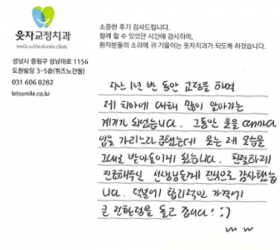 웃자교정치과
smile orthodontic clinic
소중한 후기 감사드립니다.
함께 할 수 있었던 시간에 감사하며,
환자분들의 소리에 귀 기울이는 웃자치과가 되도록 하겠습니다.
성남시 중원구 성남대로 1156
도원빌딩 3-5층(퀴즈노건물)
031 606 0282
letssmile.co.kr
지난 1년 반 동안 교정을 하며
제 치아에 대해 많이 알아가는
계기가 되었습니다. 그동안 웃을 때마다
입을 가리느라 급했는데 웃는 제 모습을
그대로 받아들이게 됐습니다. 친절하게
진료해주신 선생님들께 진심으로 감사했습
니다. 덕분에 합리적인 가격에
큰 만족감을 들고 갑니다! :)